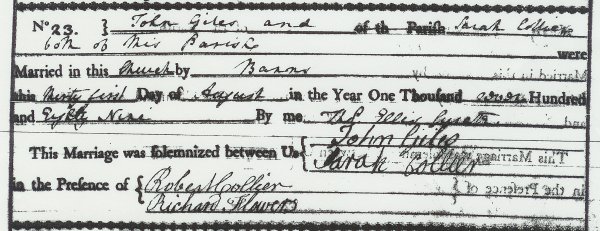 No. 23. { John Giles and of th Parish Sarah Collier
both of this Parish were
Married in this Church by Banns
this Thirty first Day of August in the Year One Thousand seven Hundred
and Eighty Nine By me Ellis Curate
This Marriage was solemnized between Us { John Giles
Sarah Collier
in the Presence of { Robert Collier
Richard Flavers